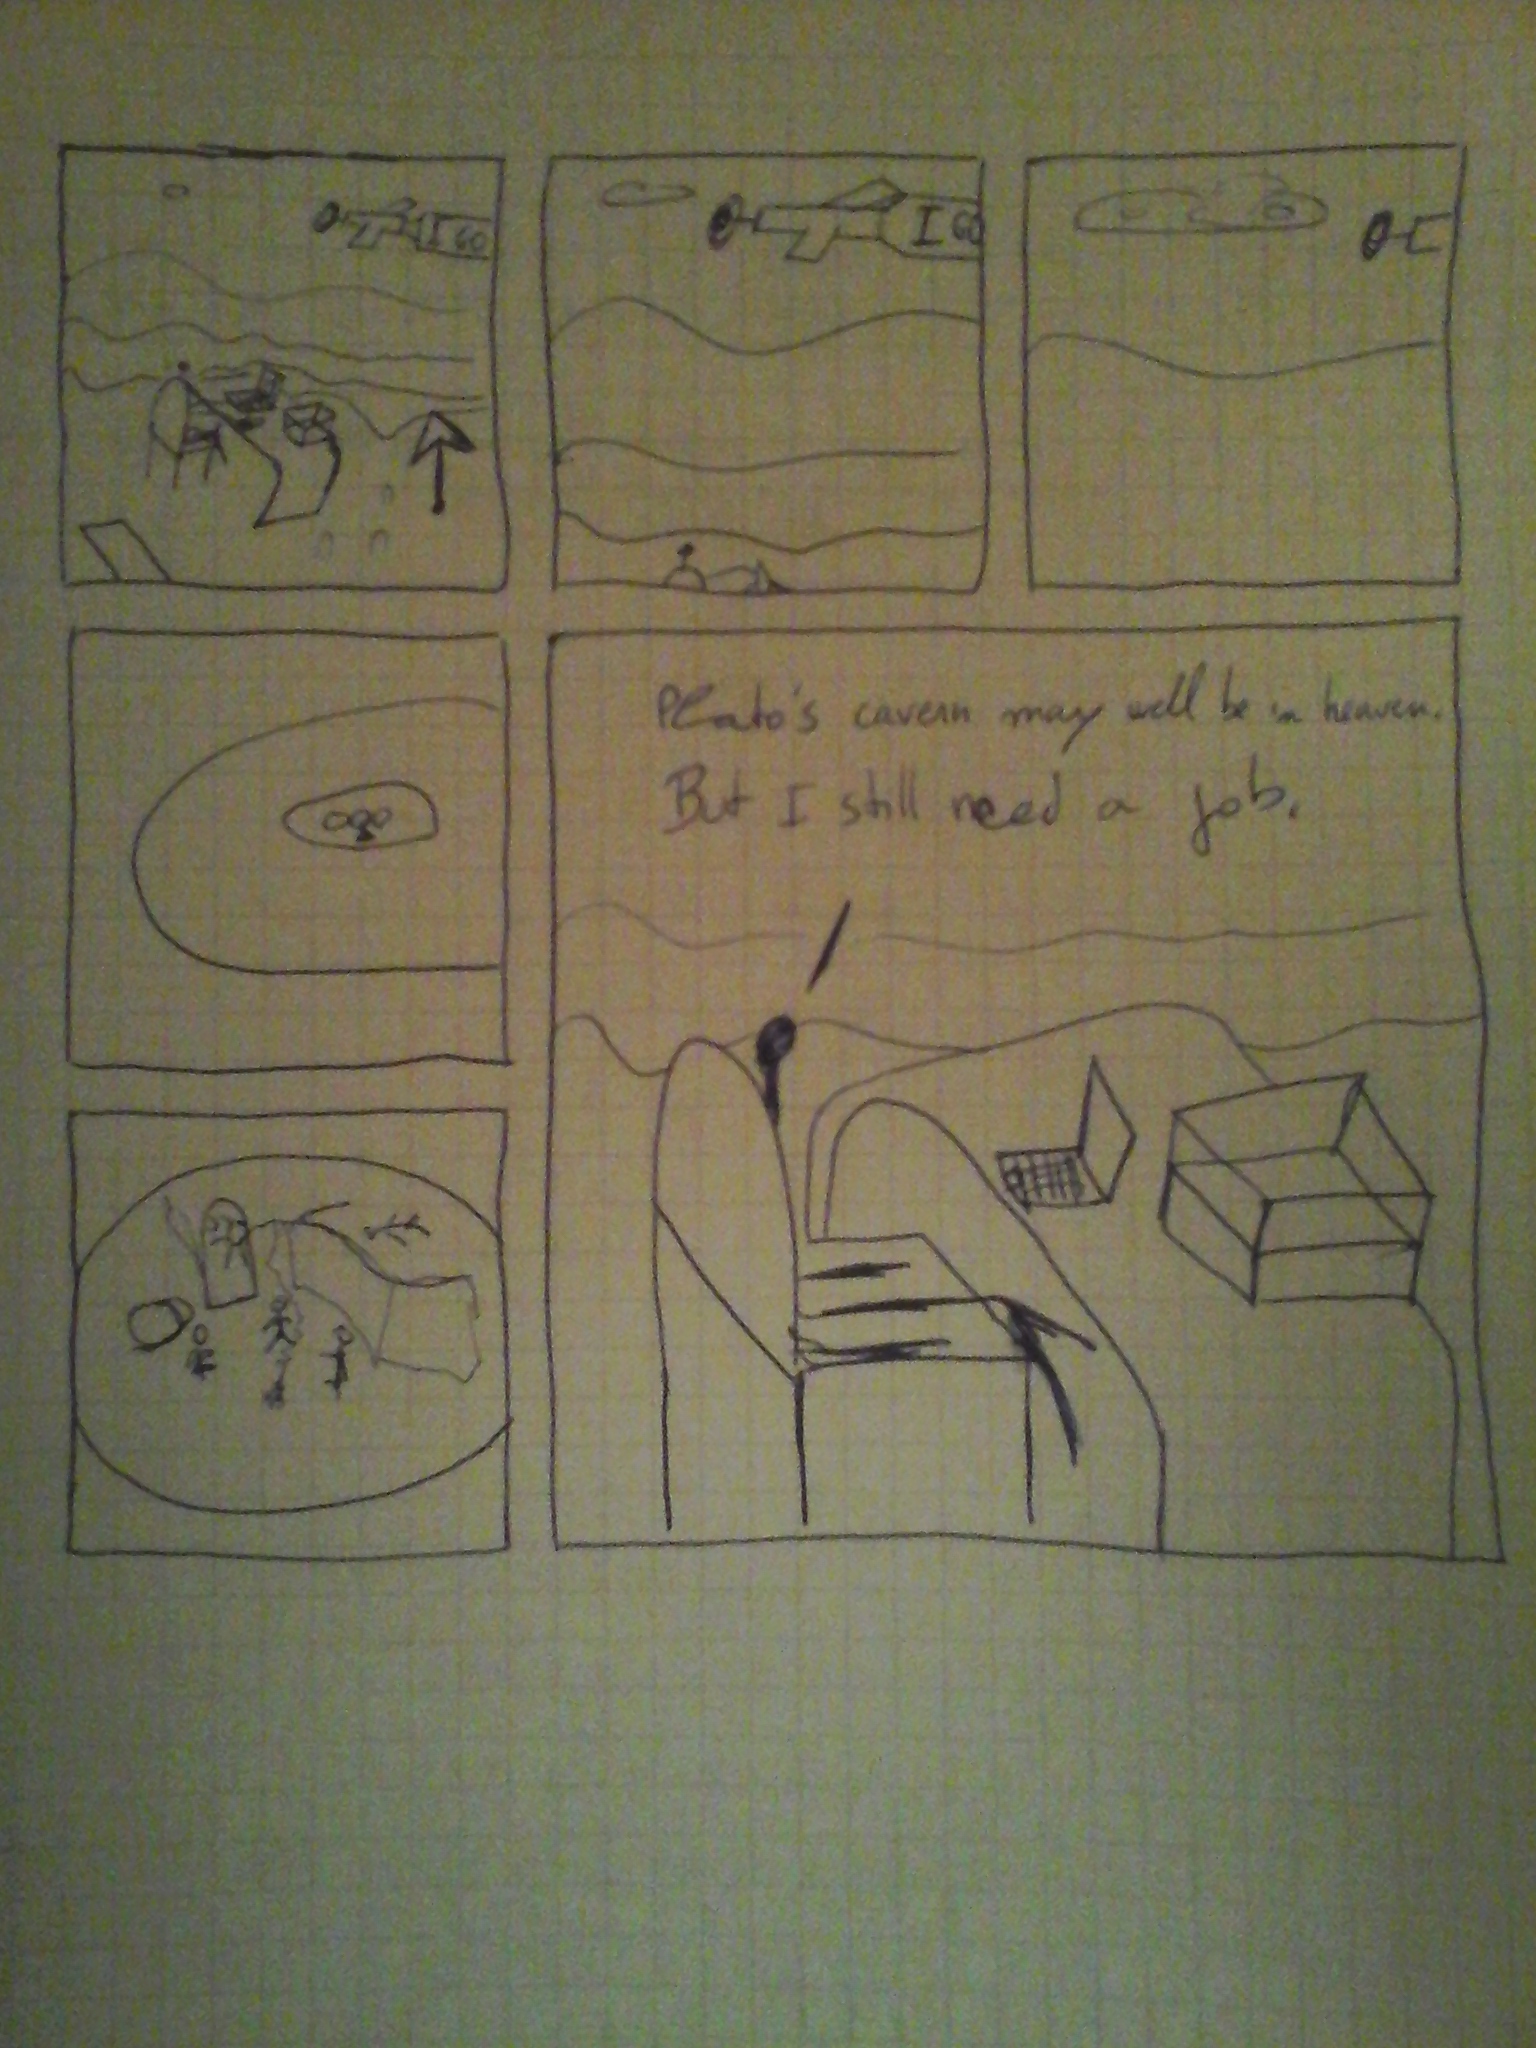 I GO
I GO
Plato's cavern may well be in heaven.
But I still need a job.